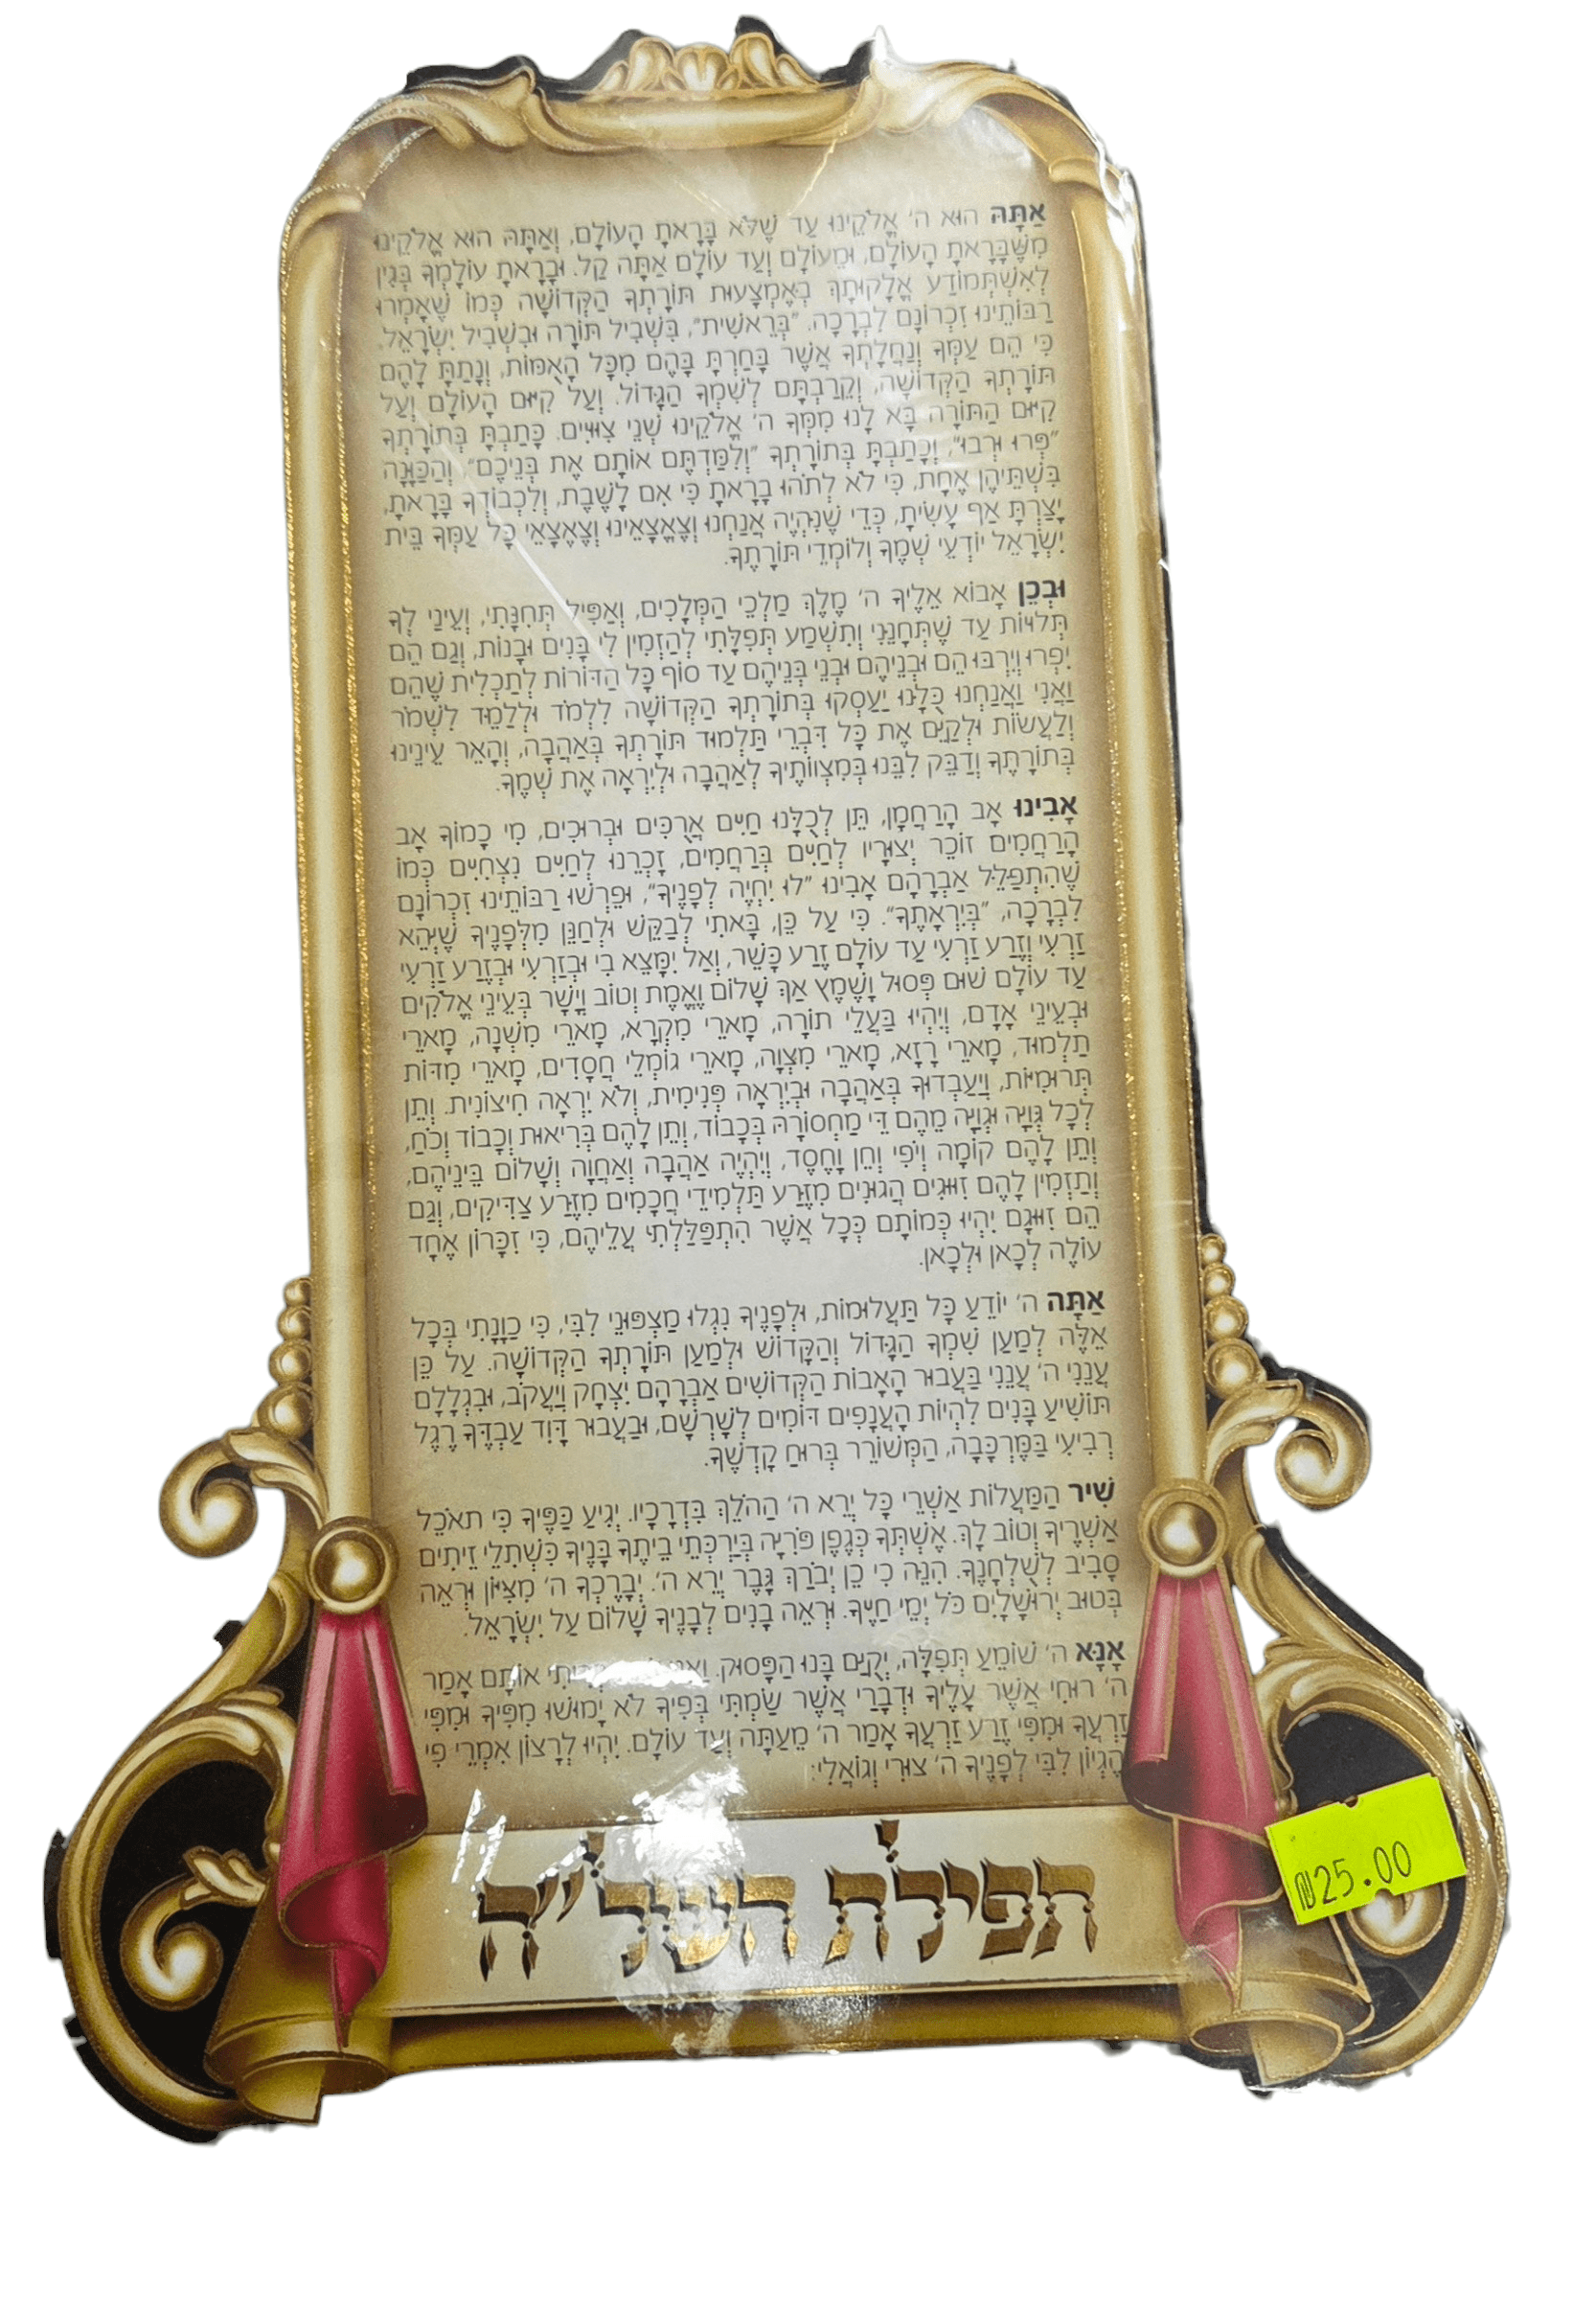 אַתָּה הוּא ה' אֱלֹקֵינוּ עַד שֶׁלֹּא בָּרָאתָ הָעוֹלָם, וְאַתָּה הוּא אֱלֹקֵינוּ
מִשֶּׁבָּרָאתָ הָעוֹלָם, וּמֵעוֹלָם וְעַד עוֹלָם אַתָּה קֵל. וּבָרָאתָ עוֹלָמְךָ בְּגִין
לְאִשְׁתְּמוֹדַע אֱלָקוּתָךְ בְּאֶמְצָעוּת תּוֹרָתְךָ הַקְּדוֹשָׁה כְּמוֹ שֶׁאָמְרוּ
רַבּוֹתֵינוּ זִכְרוֹנָם לִבְרָכָה. "בְּרֵאשִׁית", בִּשְׁבִיל תּוֹרָה וּבִשְׁבִיל יִשְׂרָאֵל,
כִּי הֵם עַמְּךָ וְנַחֲלָתְךָ אֲשֶׁר בָּחַרְתָּ בָּהֶם מִכָּל הָאֻמּוֹת, וְנָתַתָּ לָהֶם
תּוֹרָתְךָ הַקְּדוֹשָׁה, וְקֵרַבְתָּם לְשִׁמְךָ הַגָּדוֹל. וְעַל קִיּוּם הָעוֹלָם וְעַל
קִיּוּם הַתּוֹרָה בָּא לָנוּ מִמְּךָ ה' אֱלֹקֵינוּ שְׁנֵי צִוּוּיִים. כָּתַבְתָּ בְּתוֹרָתְךָ
"פְּרוּ וּרְבוּ", וְכָתַבְתָּ בְּתוֹרָתְךָ "וְלִמַּדְתֶּם אוֹתָם אֶת בְּנֵיכֶם", וְהַכַּוָּנָה
בִּשְׁתֵּיהֶן אֶחָת, כִּי לֹא לְתֹהוּ בָרָאתָ כִּי אִם לָשֶׁבֶת, וְלִכְבוֹדְךָ בָּרָאתָ,
יָצַרְתָּ אַף עָשִׂיתָ, כְּדֵי שֶׁנִּהְיֶה אֲנַחְנוּ וְצֶאֱצָאֵינוּ וְצֶאֱצָאֵי כָּל עַמְּךָ בֵּית
יִשְׂרָאֵל יוֹדְעֵי שְׁמֶךָ וְלוֹמְדֵי תּוֹרָתֶךָ.
וּבְכֵן אָבוֹא אֵלֶיךָ ה' מֶלֶךְ מַלְכֵי הַמְּלָכִים, וְאַפִּיל תְּחִנָּתִי, וְעֵינַי לְךָ
תְּלוּיוֹת עַד שֶׁתְּחָנֵּנִי וְתִשְׁמַע תְּפִלָּתִי לְהַזְמִין לִי בָּנִים וּבָנוֹת, וְגַם הֵם
יִפְרוּ וְיִרְבּוּ הֵם וּבְנֵיהֶם וּבְנֵי בְּנֵיהֶם עַד סוֹף כָּל הַדּוֹרוֹת לְתַכְלִית שֶׁהֵם
וַאֲנִי וַאֲנַחְנוּ כֻּלָּנוּ יַעַסְקוּ בְּתוֹרָתְךָ הַקְּדוֹשָׁה לִלְמֹד וּלְלַמֵּד לִשְׁמֹר
וְלַעֲשׂוֹת וּלְקַיֵּם אֶת כָּל דִּבְרֵי תַּלְמוּד תּוֹרָתְךָ בְּאַהֲבָה, וְהָאֵר עֵינֵינוּ
בְּתוֹרָתֶךָ וְדַבֵּק לִבֵּנוּ בְּמִצְווֹתֶיךָ לְאַהֲבָה וּלְיִרְאָה אֶת שְׁמֶךָ.
אָבִינוּ אָב הָרַחֲמָן, תֵּן לְכֻלָּנוּ חַיִּים אֲרֻכִּים וּבְרוּכִים, מִי כָמוֹךָ אָב
הָרַחֲמִים זוֹכֵר יְצוּרָיו לְחַיִּים בְּרַחֲמִים, זָכְרֵנוּ לְחַיִּים נִצְחִיִּים כְּמוֹ
שֶׁהִתְפַּלֵּל אַבְרָהָם אָבִינוּ "לוּ יִחְיֶה לְפָנֶיךָ", וּפֵרְשׁוּ רַבּוֹתֵינוּ זִכְרוֹנָם
לִבְרָכָה, "בְּיִרְאָתֶךָ". כִּי עַל כֵּן, בָּאתִי לְבַקֵּשׁ וּלְחַנֵּן מִלְּפָנֶיךָ שֶׁיְּהֵא
זַרְעִי וְזֶרַע זַרְעִי עַד עוֹלָם זֶרַע כָּשֵׁר, וְאַל יִמָּצֵא בִי וּבְזַרְעִי וּבְזֶרַע זַרְעִי
עַד עוֹלָם שׁוּם פְּסוּל וָשֶׁמֶץ אַךְ שָׁלוֹם וֶאֱמֶת וְטוֹב וְיָשָׁר בְּעֵינֵי אֱלֹקִים
וּבְעֵינֵי אָדָם, וְיִהְיוּ בַּעֲלֵי תוֹרָה, מָארֵי מִקְרָא, מָארֵי מִשְׁנָה, מָארֵי
תַלְמוּד, מָארֵי רָזָא, מָארֵי מִצְוָה, מָארֵי גוֹמְלֵי חֲסָדִים, מָארֵי מִדּוֹת
תְּרוּמִיּוֹת, וְיַעַבְדוּךָ בְּאַהֲבָה וּבְיִרְאָה פְּנִימִית, וְלֹא יִרְאָה חִיצוֹנִית. וְתֵן
לְכָל גְּוִיָּה וּגְוִיָּה מֵהֶם דֵּי מַחְסוֹרָהּ בְּכָבוֹד, וְתֵן לָהֶם בְּרִיאוּת וְכָבוֹד וְכֹחַ,
וְתֵן לָהֶם קוֹמָה וְיֹפִי וְחֵן וָחֶסֶד, וְיִהְיֶה אַהֲבָה וְאַחֲוָה וְשָׁלוֹם בֵּינֵיהֶם,
וְתַזְמִין לָהֶם זִוּוּגִים הֲגוּנִים מִזֶּרַע תַּלְמִידֵי חֲכָמִים מִזֶּרַע צַדִּיקִים, וְגַם
הֵם זִוּוּגָם יִהְיוּ כְּמוֹתָם כְּכָל אֲשֶׁר הִתְפַּלַּלְתִּי עֲלֵיהֶם, כִּי זִכָּרוֹן אֶחָד
עוֹלֶה לְכָאן וּלְכָאן.
אַתָּה ה' יוֹדֵעַ כָּל תַּעֲלוּמוֹת, וּלְפָנֶיךָ נִגְלוּ מַצְפּוּנֵי לִבִּי, כִּי כַוָּנָתִי בְּכָל
אֵלֶּה לְמַעַן שִׁמְךָ הַגָּדוֹל וְהַקָּדוֹשׁ וּלְמַעַן תּוֹרָתְךָ הַקְּדוֹשָׁה. עַל כֵּן
עֲנֵנִי ה' עֲנֵנִי בַּעֲבוּר הָאָבוֹת הַקְּדוֹשִׁים אַבְרָהָם יִצְחָק וְיַעֲקֹב, וּבִגְלָלָם
תּוֹשִׁיעַ בָּנִים לִהְיוֹת הָעֲנָפִים דּוֹמִים לְשָׁרְשָׁם, וּבַעֲבוּר דָּוִד עַבְדֶּךָ רֶגֶל
רְבִיעִי בַּמֶּרְכָּבָה, הַמְשׁוֹרֵר בְּרוּחַ קָדְשֶׁךָ.
שִׁיר הַמַּעֲלוֹת אַשְׁרֵי כָּל יְרֵא ה' הַהֹלֵךְ בִּדְרָכָיו. יְגִיעַ כַּפֶּיךָ כִּי תֹאכֵל
אַשְׁרֶיךָ וְטוֹב לָךְ. אֶשְׁתְּךָ כְּגֶפֶן פֹּרִיָּה בְּיַרְכְּתֵי בֵיתֶךָ בָּנֶיךָ כִּשְׁתִלֵי זֵיתִים
סָבִיב לְשֻׁלְחָנֶךָ. הִנֵּה כִי כֵן יְבֹרַךְ גָּבֶר יְרֵא ה'. יְבָרֶכְךָ ה' מִצִּיּוֹן וּרְאֵה
בְּטוּב יְרוּשָׁלָיִם כֹּל יְמֵי חַיֶּיךָ. וּרְאֵה בָנִים לְבָנֶיךָ שָׁלוֹם עַל יִשְׂרָאֵל.
אָנָּא ה' שׁוֹמֵעַ תְּפִלָּה, יְקֻיַּם בָּנוּ הַפָּסוּק. אוֹתָם אָמַר
ה' רוּחִי אֲשֶׁר עָלֶיךָ וּדְבָרַי אֲשֶׁר שַׂמְתִּי בְּפִיךָ לֹא יָמוּשׁוּ מִפִּיךָ וּמִפִּי
זַרְעֲךָ וּמִפִּי זֶרַע זַרְעֲךָ אָמַר ה' מֵעַתָּה וְעַד עוֹלָם. יִהְיוּ לְרָצוֹן אִמְרֵי פִי
הֶגְיוֹן לִבִּי לְפָנֶיךָ ה' צוּרִי וְגוֹאֲלִי:
תפילת השל"ה
₪25.00